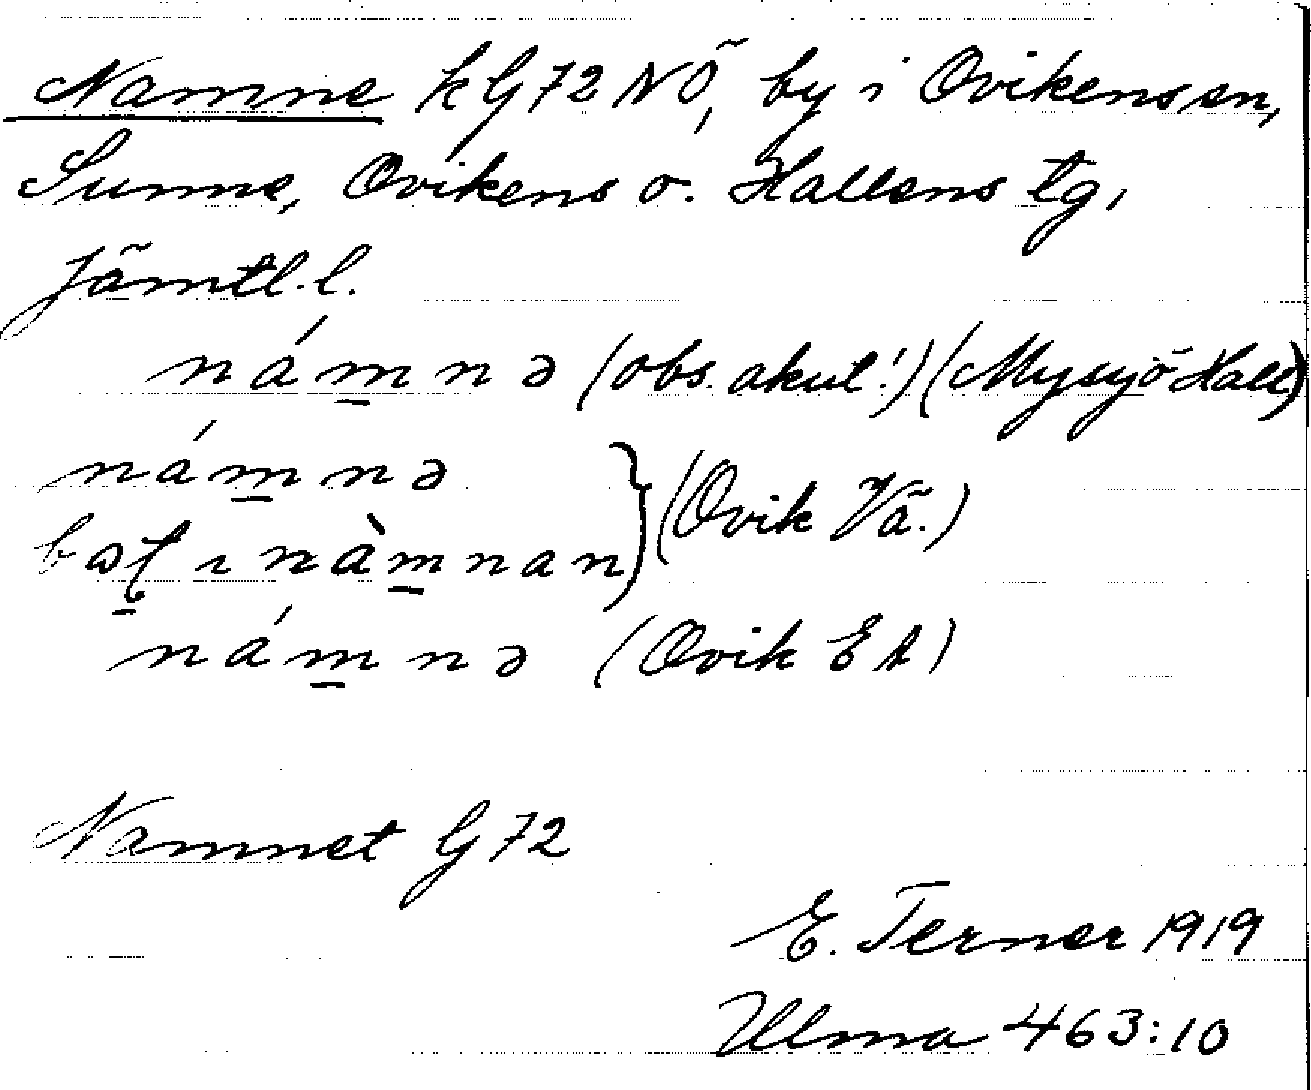 Namne kG72NÖ, by i Ovikens sn,
Sunne, Ovikens o. Hallens tg,
Jämtl. l.
námnə (obs. akut!) (Mysjö Hall)
námnə
bəļ ı nàmnan } (Ovik Vä.)
námnə (Ovik EA)
Namnet G72
E. Terner 1919
Ulma 463:10